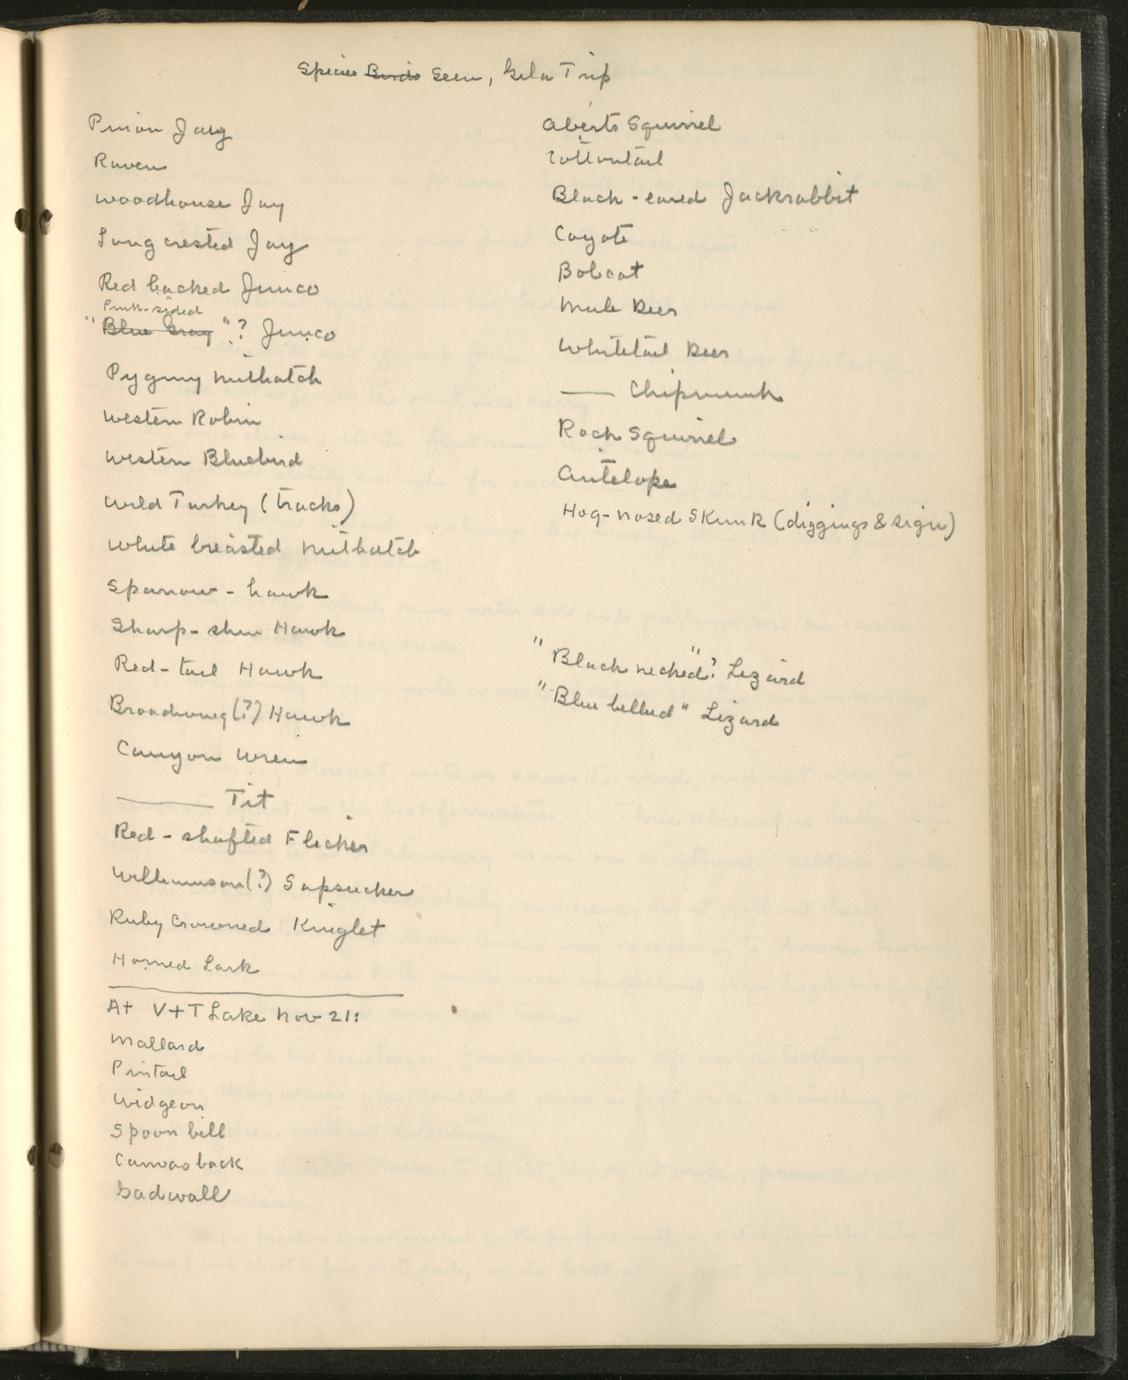 Species Birds Seen, Gila Trip
Pinon Jay
Raven
Woodhouse Jay
Long crested Jay
Red backed Junco
Pink-sided
"Blue Gray"? Junco
Pygmy Nuthatch
Western Robin
Western Bluebird
Wild Turkey (tracks)
White breasted Nuthatch
Sparrow-hawk
Sharp-shin Hawk
Red-tail Hawk
Broadwing(?) Hawk
Canyon Wren
—— Tit
Red-shafted Flicker
Williamson(?) Sapsucker
Ruby Crowned Kinglet
Horned Lark
At V+T Lake Nov 21:
Mallard
Pintail
Widgeon
Spoonbill
Canvasback
Gadwall
Aberts Squirrel
Cottontail
Black-eared Jackrabbit
Coyote
Bobcat
Mule Deer
Whitetail Deer
—— Chipmunk
Rock Squirrel
Antelope
Hog-nosed Skunk (diggings & sign)
"Black necked"? Lizard
"Blue bellied" Lizard